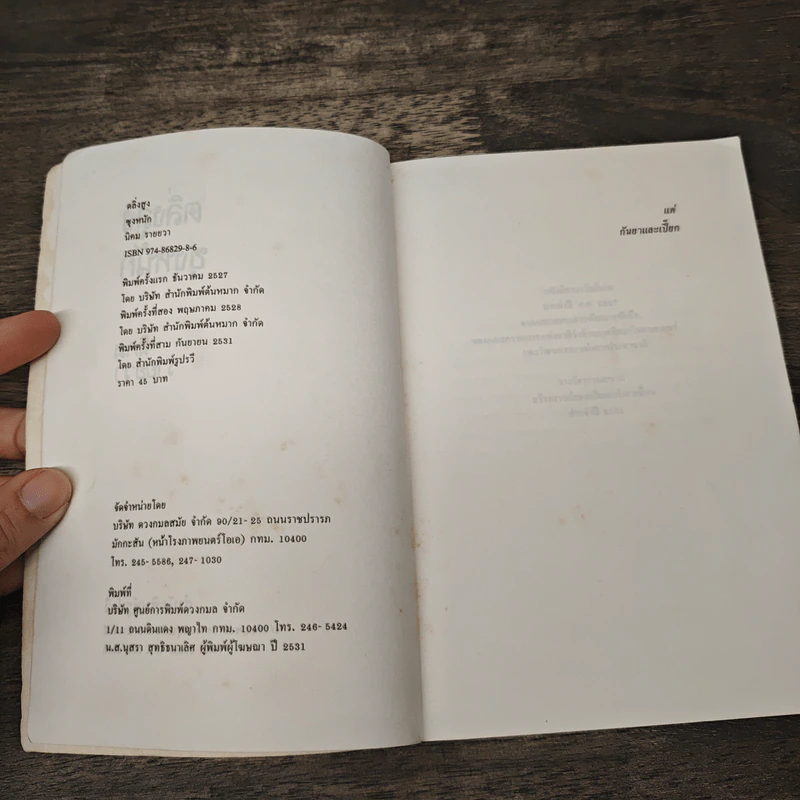 ตลิ่งสูง
ซุงหนัก
นิคม รายยวา
ISBN 974-86829-8-6
พิมพ์ครั้งแรก ธันวาคม 2527
โดย บริษัท สำนักพิมพ์ต้นหมาก จำกัด
พิมพ์ครั้งที่สอง พฤษภาคม 2528
โดย บริษัท สำนักพิมพ์ต้นหมาก จำกัด
พิมพ์ครั้งที่สาม กันยายน 2531
โดย สำนักพิมพ์รูปรวี
ราคา 45 บาท
จัดจำหน่ายโดย
บริษัท ดวงกมลสมัย จำกัด 90/21-25 ถนนราชปรารภ
มักกะสัน (หน้าโรงภาพยนตร์โอเอ) กทม. 10400
โทร. 245-5586, 247-1030
พิมพ์ที่
บริษัท ศูนย์การพิมพ์ดวงกมล จำกัด
1/11 ถนนดินแดง พญาไท กทม. 10400 โทร. 246-5424
น.ส.นุสรา สุทธิธนาเลิศ ผู้พิมพ์ผู้โฆษณา ปี 2531
แด่
กันยาและเปี๊ยก